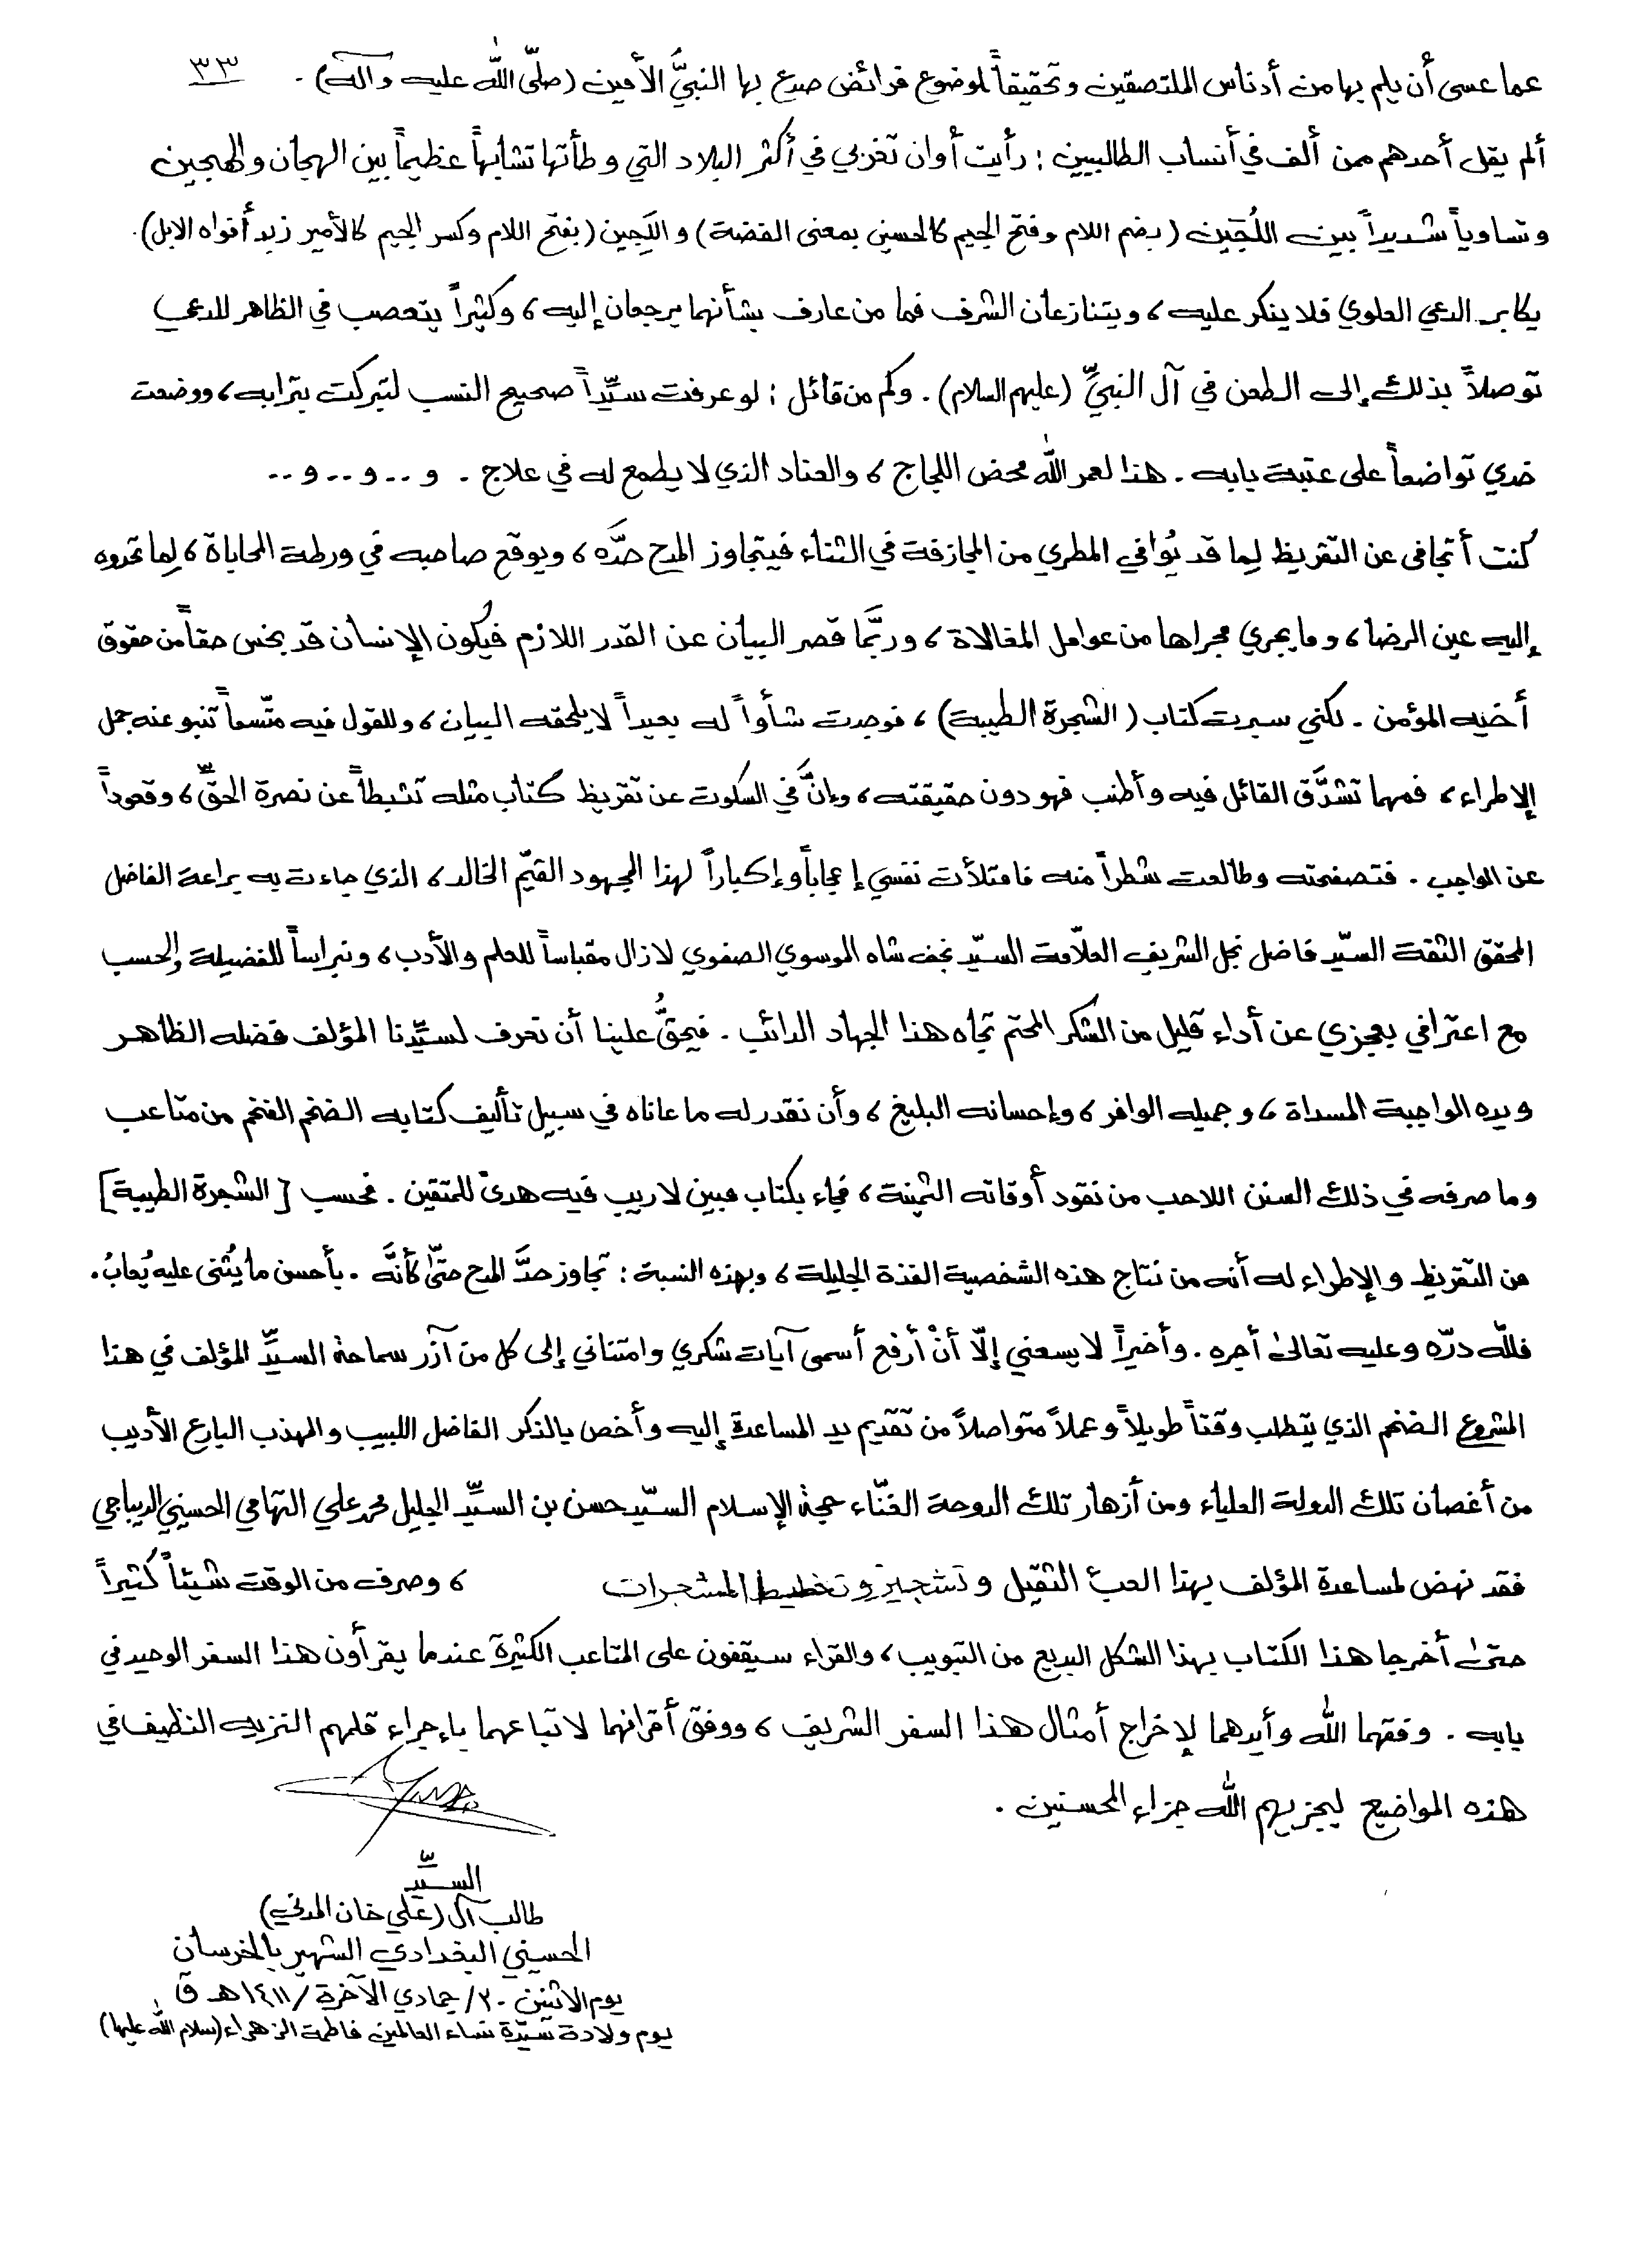 ٣٣
عما عسى أن يلم بها من أدناس الملتصقين وتحقيقاً لموضوع فرائض صدع بها النبيُّ الأمين (صلّى الله عليه وآله) .
ألم يقل أحدهم ممن ألف في أنساب الطالبيين : رأيت أوان تغربي في أكثر البلاد التي وطأتها تشابهاً عظيماً بين الهجان والهجين
وتساوياً شديداً بين اللُجَين (بضم اللام وفتح الجيم كالحسين بمعنى الفضة) واللَجِين (بفتح اللام وكسر الجيم كالأمير زبد أفواه الابل).
يكابر الدعي العلوي فلا ينكر عليه ، ويتنازعان الشرف فما من عارف بشأنهما يرجعان إليه ، وكثيراً يتعصب في الظاهر للدعي
توصلاً بذلك إلى الطعن في آل النبيِّ (عليهم السلام) . وكم من قائل : لو عرفت سيِّداً صحيح النسب لتبركت بترابه ، ووضعت
خدي تواضعاً على عتبة بابه . هذا لعمر الله محض اللجاج ، والعناد الذي لا يطمع له في علاج . و .. و .. و ..
كنت أتجافى عن التقريظ لِما قد يُوافي المطري من المجازفة في الثناء فيتجاوز المدح حدَّه ، ويوقع صاحبه في ورطة المحاباة ، لِما تحدوه
إليه عين الرضا ، وما يجري مجراها من عوامل المغالاة ، وربَّما قصر البيان عن القدر اللازم فيُكون الإنسان قد بخس حقاً من حقوق
أخيه المؤمن . لكني سبرت كتاب (الشجرة الطيبة) ، فوجدت شأواً له بعيداً لا يلحقه البيان ، وللقول فيه متّسعاً تنبو عنه جمل
الإطراء ، فمهما تشدَّق القائل فيه وأطنب فهو دون حقيقته ، وإنَّ في السكوت عن تقريظ كتاب مثله تثبطاً عن نصرة الحقِّ ، وقعوداً
عن الواجب . فتصفحته وطالعت شطراً منه فامتلأت نفسي إعجاباً وإكباراً لهذا المجهود القيّم الخالد ، الذي جاءت به يراعة الفاضل
المحقق الثقة السيّد فاضل نجل الشريف العلّامة السيّد نجف شاه الموسوي الصفوي لازال مقباساً للعلم والأدب ، ونبراساً للفضيلة والحسب
مع اعترافي بعجزي عن أداء قليل من الشكر المحتم تجاه هذا الجهاد الدائب . فيحقُّ علينا أن نعرف لسيِّدنا المؤلف فضله الظاهر
ويده الواجبة المسداة ، وجميله الوافر ، وإحسانه البليغ ، وأن نقدر له ما عاناه في سبيل تأليف كتابه الضخم الفخم من متاعب
وما صرفه في ذلك السنن اللاحب من نقود أوقاته الثمينة ، فجاء بكتاب مبين لا ريب فيه هدىً للمتقين . فحسب [الشجرة الطيبة]
من التقريظ والإطراء له أنه من نتاج هذه الشخصية الفذة الجليلة ، وبهذه النسبة : تجاوز حدَّ المدح حتّىٰ كأنَّه . بأحسن ما يُثنى عليه يُعابُ .
فللّه درّه وعليه تعالىٰ أجره . وأخيراً لا يسعني إلّا أنْ أرفع أسمى آيات شكري وامتناني إلى كل من آزر سماحة السيِّد المؤلف في هذا
المشروع الضخم الذي يتطلب وقتاً طويلاً وعملاً متواصلاً من تقديم يد المساعدة إليه وأخص بالذكر الفاضل اللبيب والمهذب البارع الأديب
من أغصان تلك الدولة العلياء ومن أزهار تلك الدوحة الغنّاء حجة الإسلام السيّد حسن بن السيِّد الجليل محمد علي التهامي الحسيني الديباجي
فقد نهض لمساعدة المؤلف بهذا العبء الثقيل وتشجير وتخطيط المشجرات ، وصرف من الوقت شيئاً كثيراً
حتىٰ أخرجا هذا الكتاب بهذا الشكل البديع من التبويب ، والقراء سيقفون على المتاعب الكثيرة عندما يقرأون هذا السفر الوحيد في
بابه . وفقهما الله وأيدهما لإخراج أمثال هذا السفر الشريف ، ووفق أقرانهما لاتباعهما بإجراء قلمهم النزيه النظيف في
هذه المواضيع ليجزيهم الله جزاء المحسنين .
السيِّد
طالب آل (علي خان المدني)
الحسيني البغدادي الشهير بالخرسان
يوم الاثنين ٢٠/جمادي الآخرة/١٤١١هـ ق
يوم ولادة سيّدة نساء العالمين فاطمة الزهراء (سلام الله عليها)